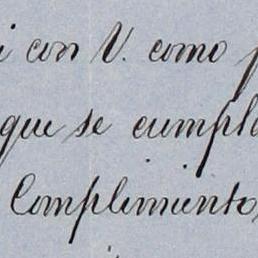 i con V. como p
que se cumpla
Complimiento,